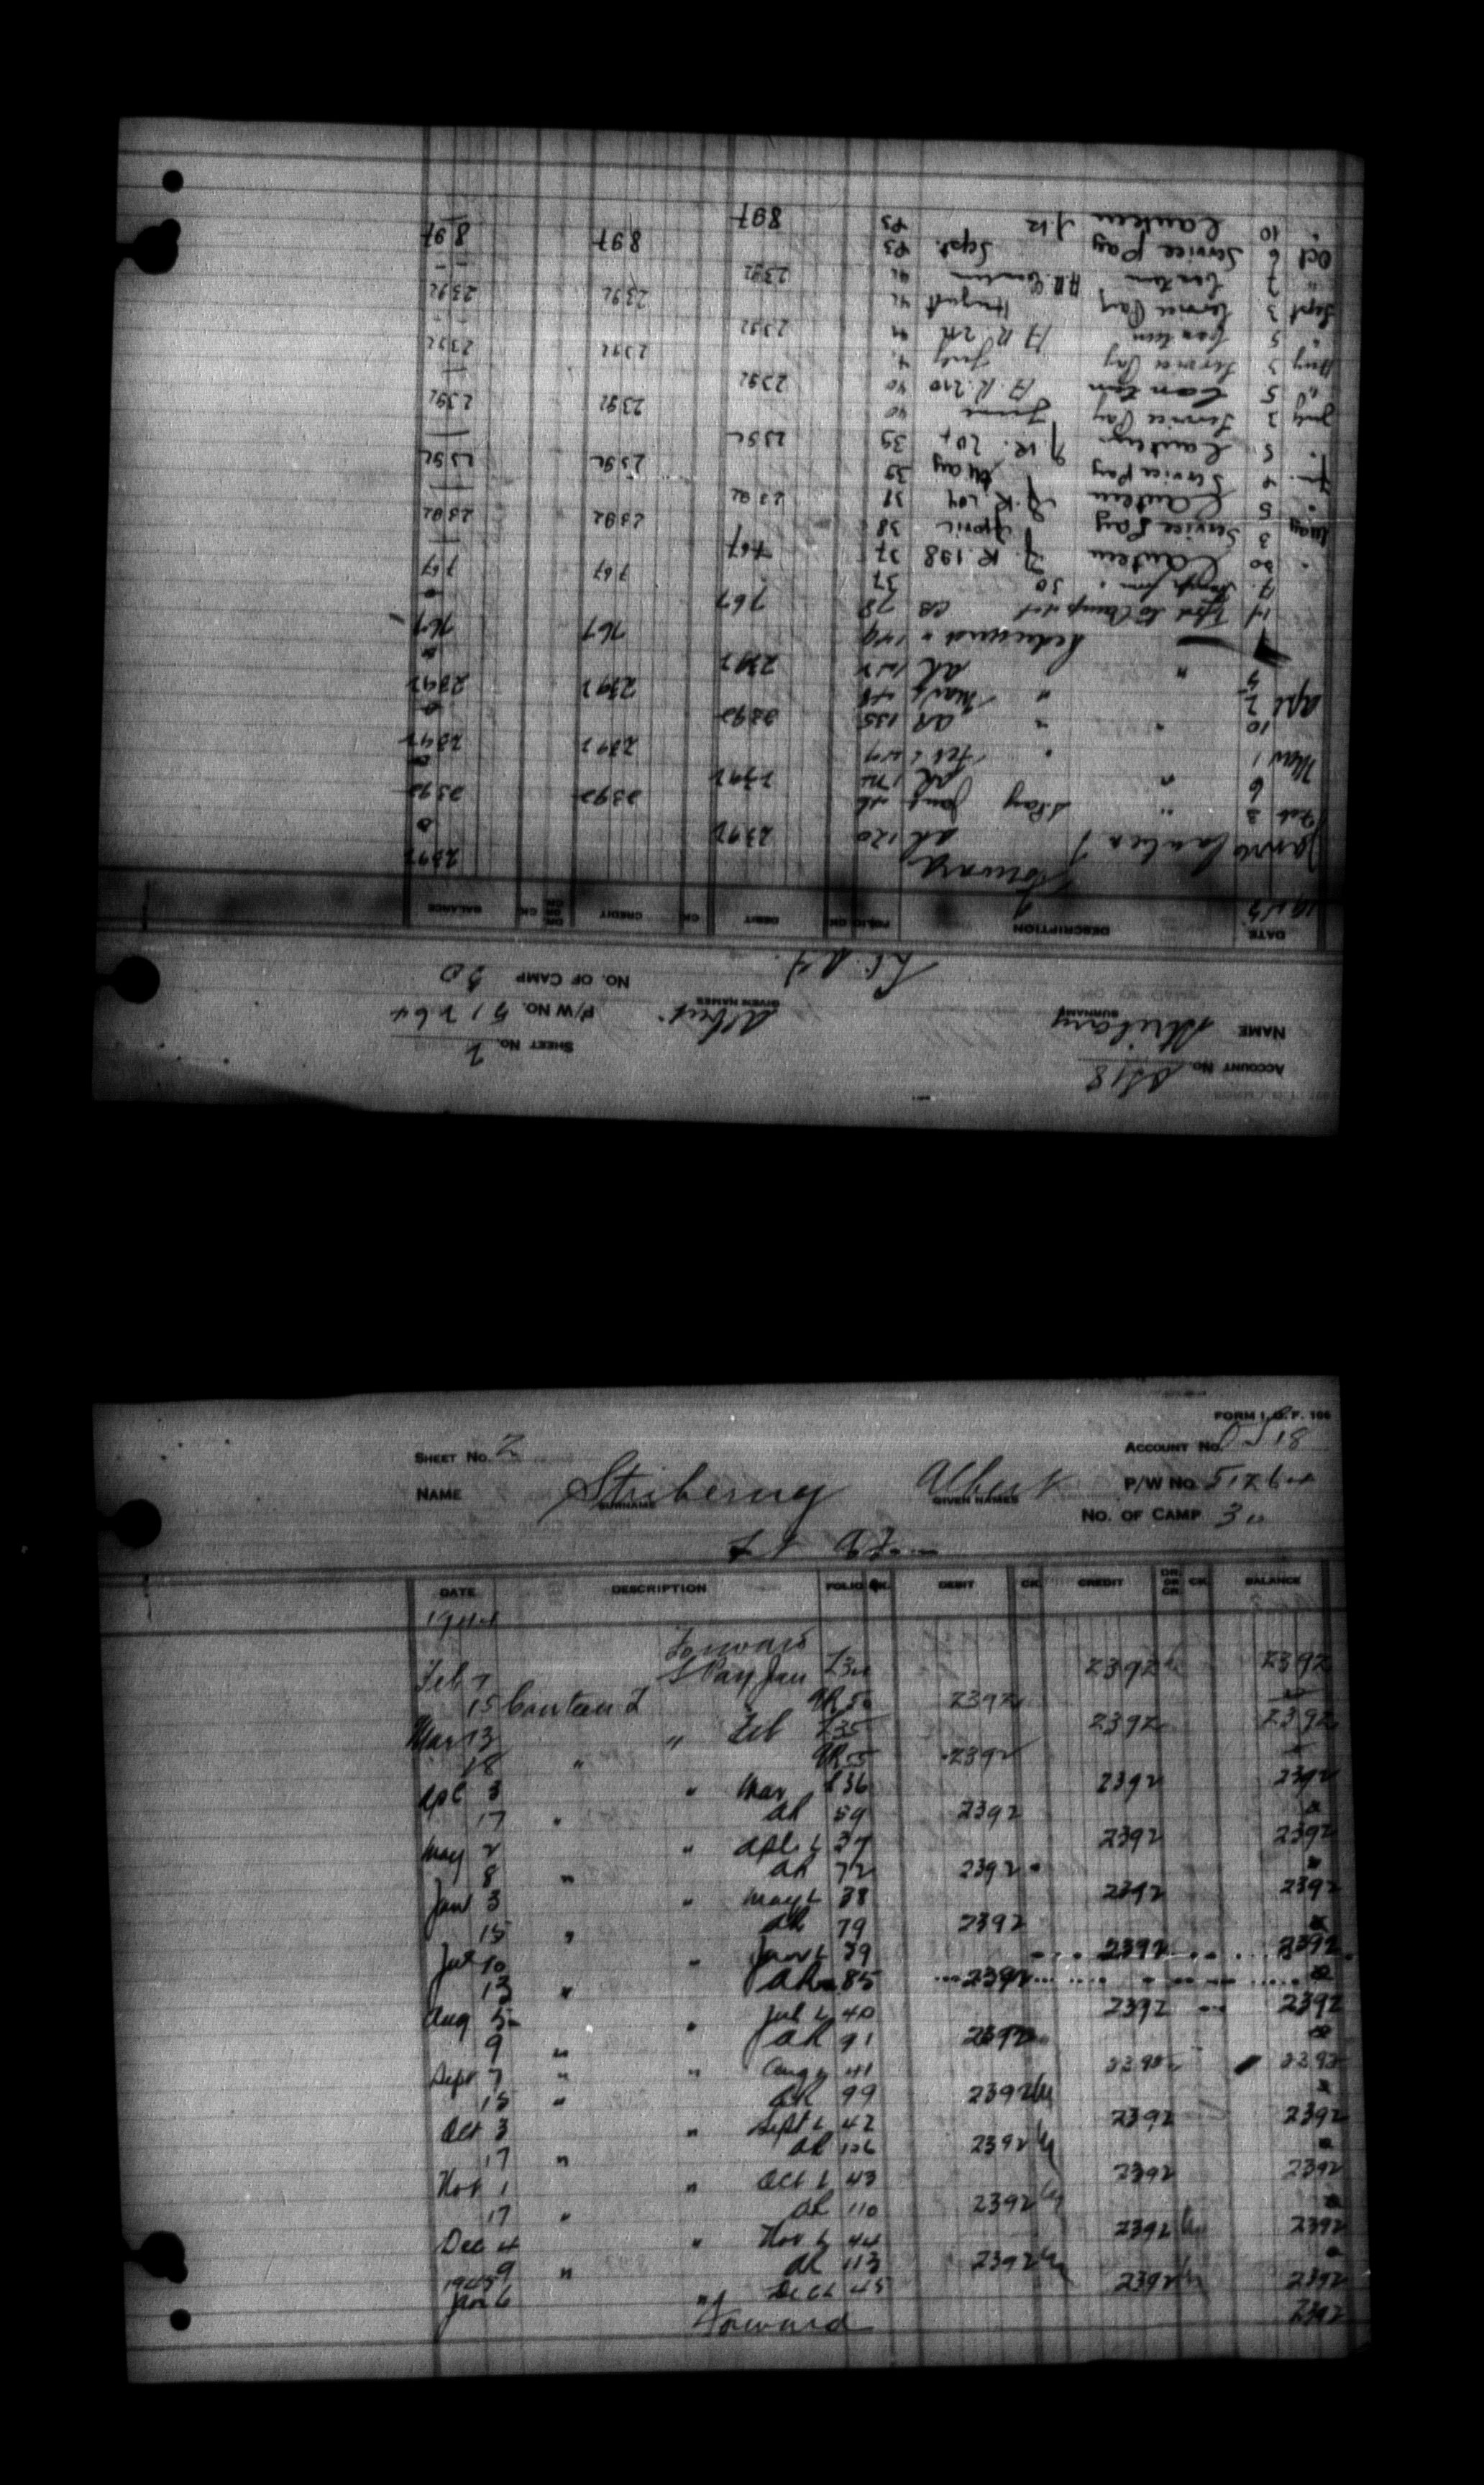 ACCOUNT No. DS18
SHEET No. 2
NAME SURNAME Albert GIVEN NAMES P/W No. 51264
Lt. NO. OF CAMP 30
DATE DESCRIPTION FOLIO CK DEBIT CK CREDIT DR. OR CR. CK BALANCE
1945 Forward 2392
Jan Canteen AR 120 2392 0
Feb 3 " S Pay Jany 46 2392 2392
6 " AR 2392
Mar 1 " Feb L 47 2392 2392
10 " " AR 135 2392 0
Apl 2 " Mar L 48 2392 2392
5 " AR 2392 0
767 767
14 Tfd to Camp CB 78 767 0
37 767 767
30 Canteen A.R. 198 37 767
May 3 Service Pay April 38 2392 2392
" 5 Canteen A.R. 204 38 2392
4 Service Pay May 39 2392 2392
" 5 Canteen A.R. 39 2392
July 3 Service Pay June 40 2392 2392
" 5 Canteen A.R. 210 40 2392
Aug 3 Service Pay July 2392 2392
" 5 Canteen A.R. 2392
Sept 3 Service Pay August 42 2392 2392
" 7 Canteen A.R. 42 2392
Oct 6 Service Pay Sept. P3 897 897
" 10 Canteen P3 897
FORM I.O.F. 166
SHEET No. 2 ACCOUNT No. DS18
NAME Striberny SURNAME Albert GIVEN NAMES P/W No. 51264
Lt No. OF CAMP 30
DATE DESCRIPTION FOLIO CK. DEBIT CK. CREDIT DR. OR CR. CK. BALANCE
1944
Forward
Feb 7 S Pay Jan 2392 2392
15 Canteen AR 50 2392
Mar 13 " Feb L35 2392 2392
18 " AR 55 2392
Apl 3 " Mar L36 2392 2392
17 " AR 59 2392 0
May 2 " Apl L 37 2392 2392
8 " AR 72 2392 0
Jun 3 " May L 38 2392 2392
15 " AR 79 2392 0
Jul 10 " Jun L 39 2392 2392
13 " AR 85 2392 0
Aug 5 " Jul L 40 2392 2392
9 " AR 91 2392 0
Sept 7 " " Aug L 41 2392 2392
15 " AR 99 2392 0
Oct 3 " Sept L 42 2392 2392
17 " AR 106 2392 0
Nov 1 " Oct L 43 2392 2392
17 " AR 110 2392 0
Dec 4 " Nov L 44 2392 2392
9 " AR 113 2392 0
1945
Jan 6 " Dec L 45 2392 2392
Forward 2392